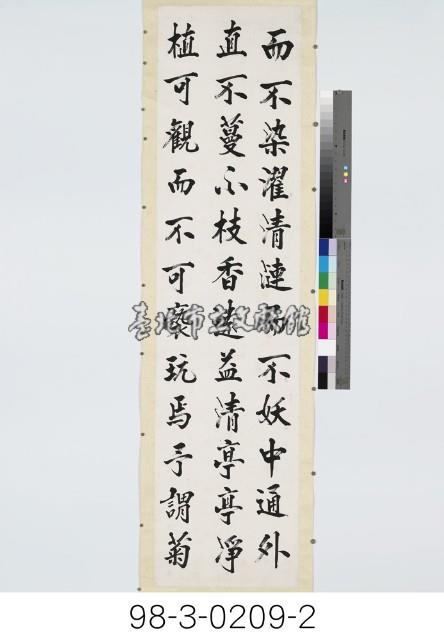 而不染濯清漣而不妖中通外
直不蔓不枝香遠益清亭亭淨
植可觀而不可褻玩焉予謂菊
臺北市立文獻館
98-3-0209-2